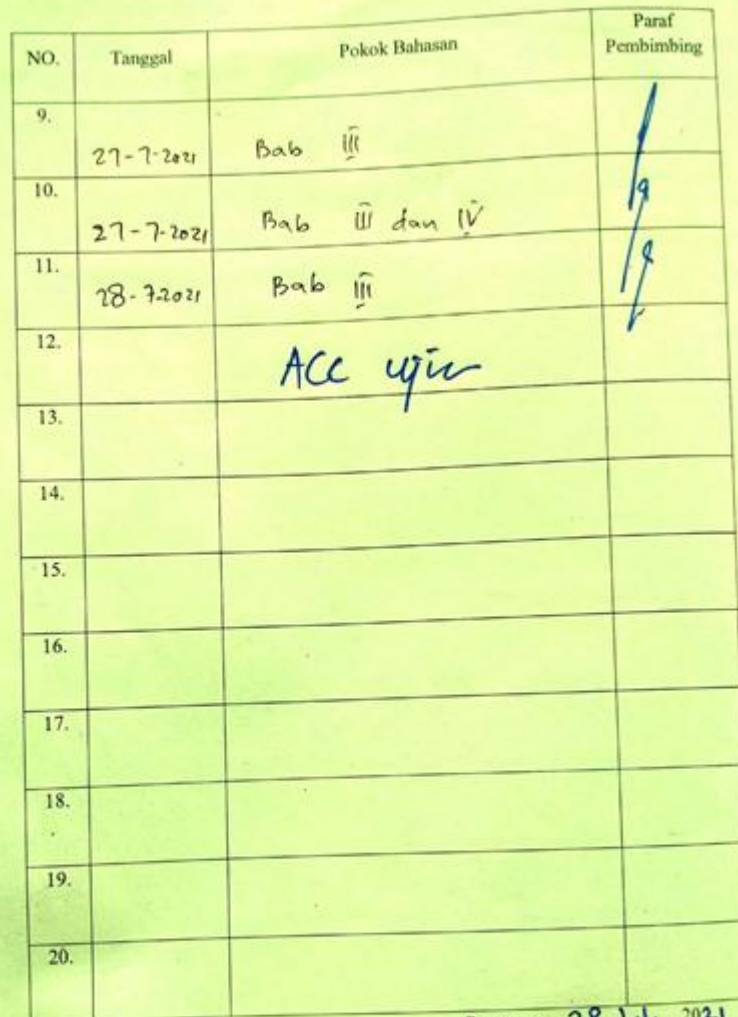 NO. Tanggal Pokok Bahasan Paraf Pembimbing
9. 27-7-2021 Bab III
10. 27-7-2021 Bab III dan IV
11. 28-7-2021 Bab III
12. ACC ujian
13.
14.
15.
16.
17.
18.
19.
20.
28 2021